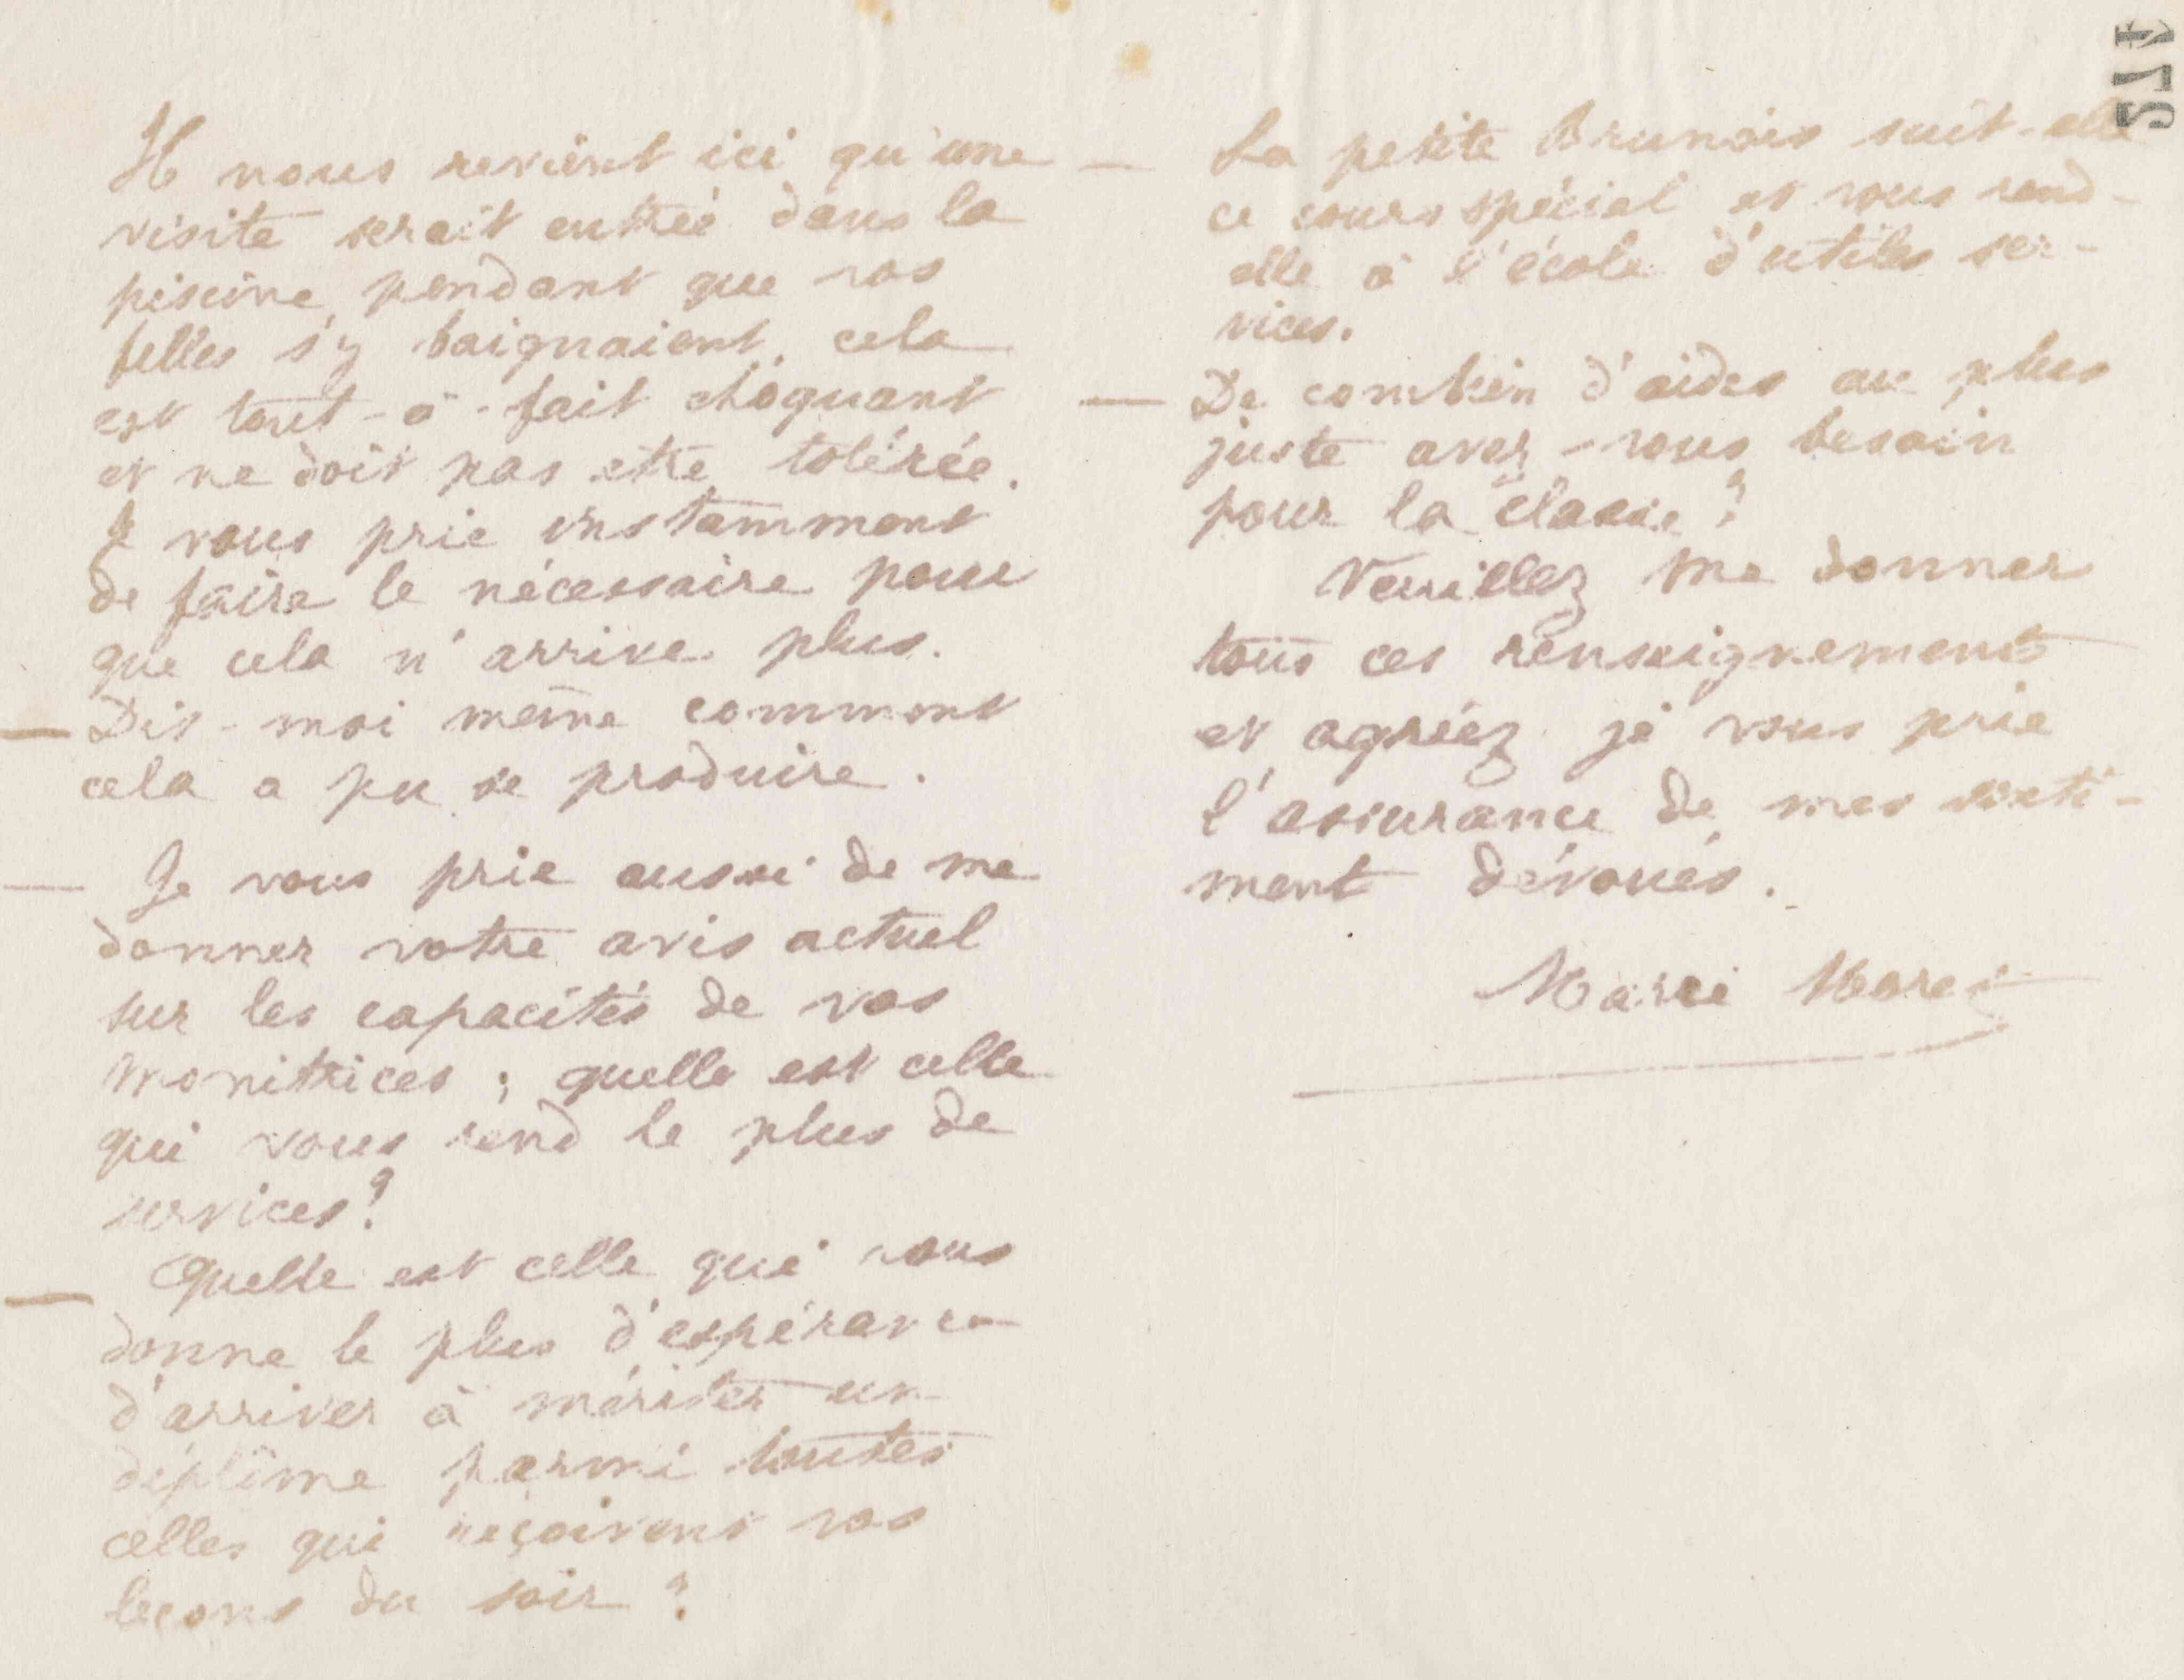 Il nous revient ici qu'une
visite serait entrée dans la
piscine pendant que vos
filles s'y baignaient, cela
est tout-à-fait choquant
et ne doit pas etre tolérée.
Je vous prie instamment
de faire le nécessaire pour
que cela n'arrive plus.
— Dit-moi même comment
cela a pu se produire.
— Je vous prie aussi de me
donner votre avis actuel
sur les capacités de vos
monitrices ; quelle est celle
qui vous rend le plus de
services ?
— Quelle est celle qui vous
donne le plus d'espérance
d'arriver à mériter un
diplôme parmi toutes
celles qui reçoivent vos
leçons du soir ?
— La petite Brunois suit-elle
ce cours spécial et vous rend-
elle à l'école d'utiles ser-
vices.
— De combien d'aides au plus
juste avez-vous besoin
pour la classe ?
Veuillez me donner
tous ces renseignements
et agréez je vous prie
l'assurance de mes senti-
ment dévoués.
Marie Moret
477